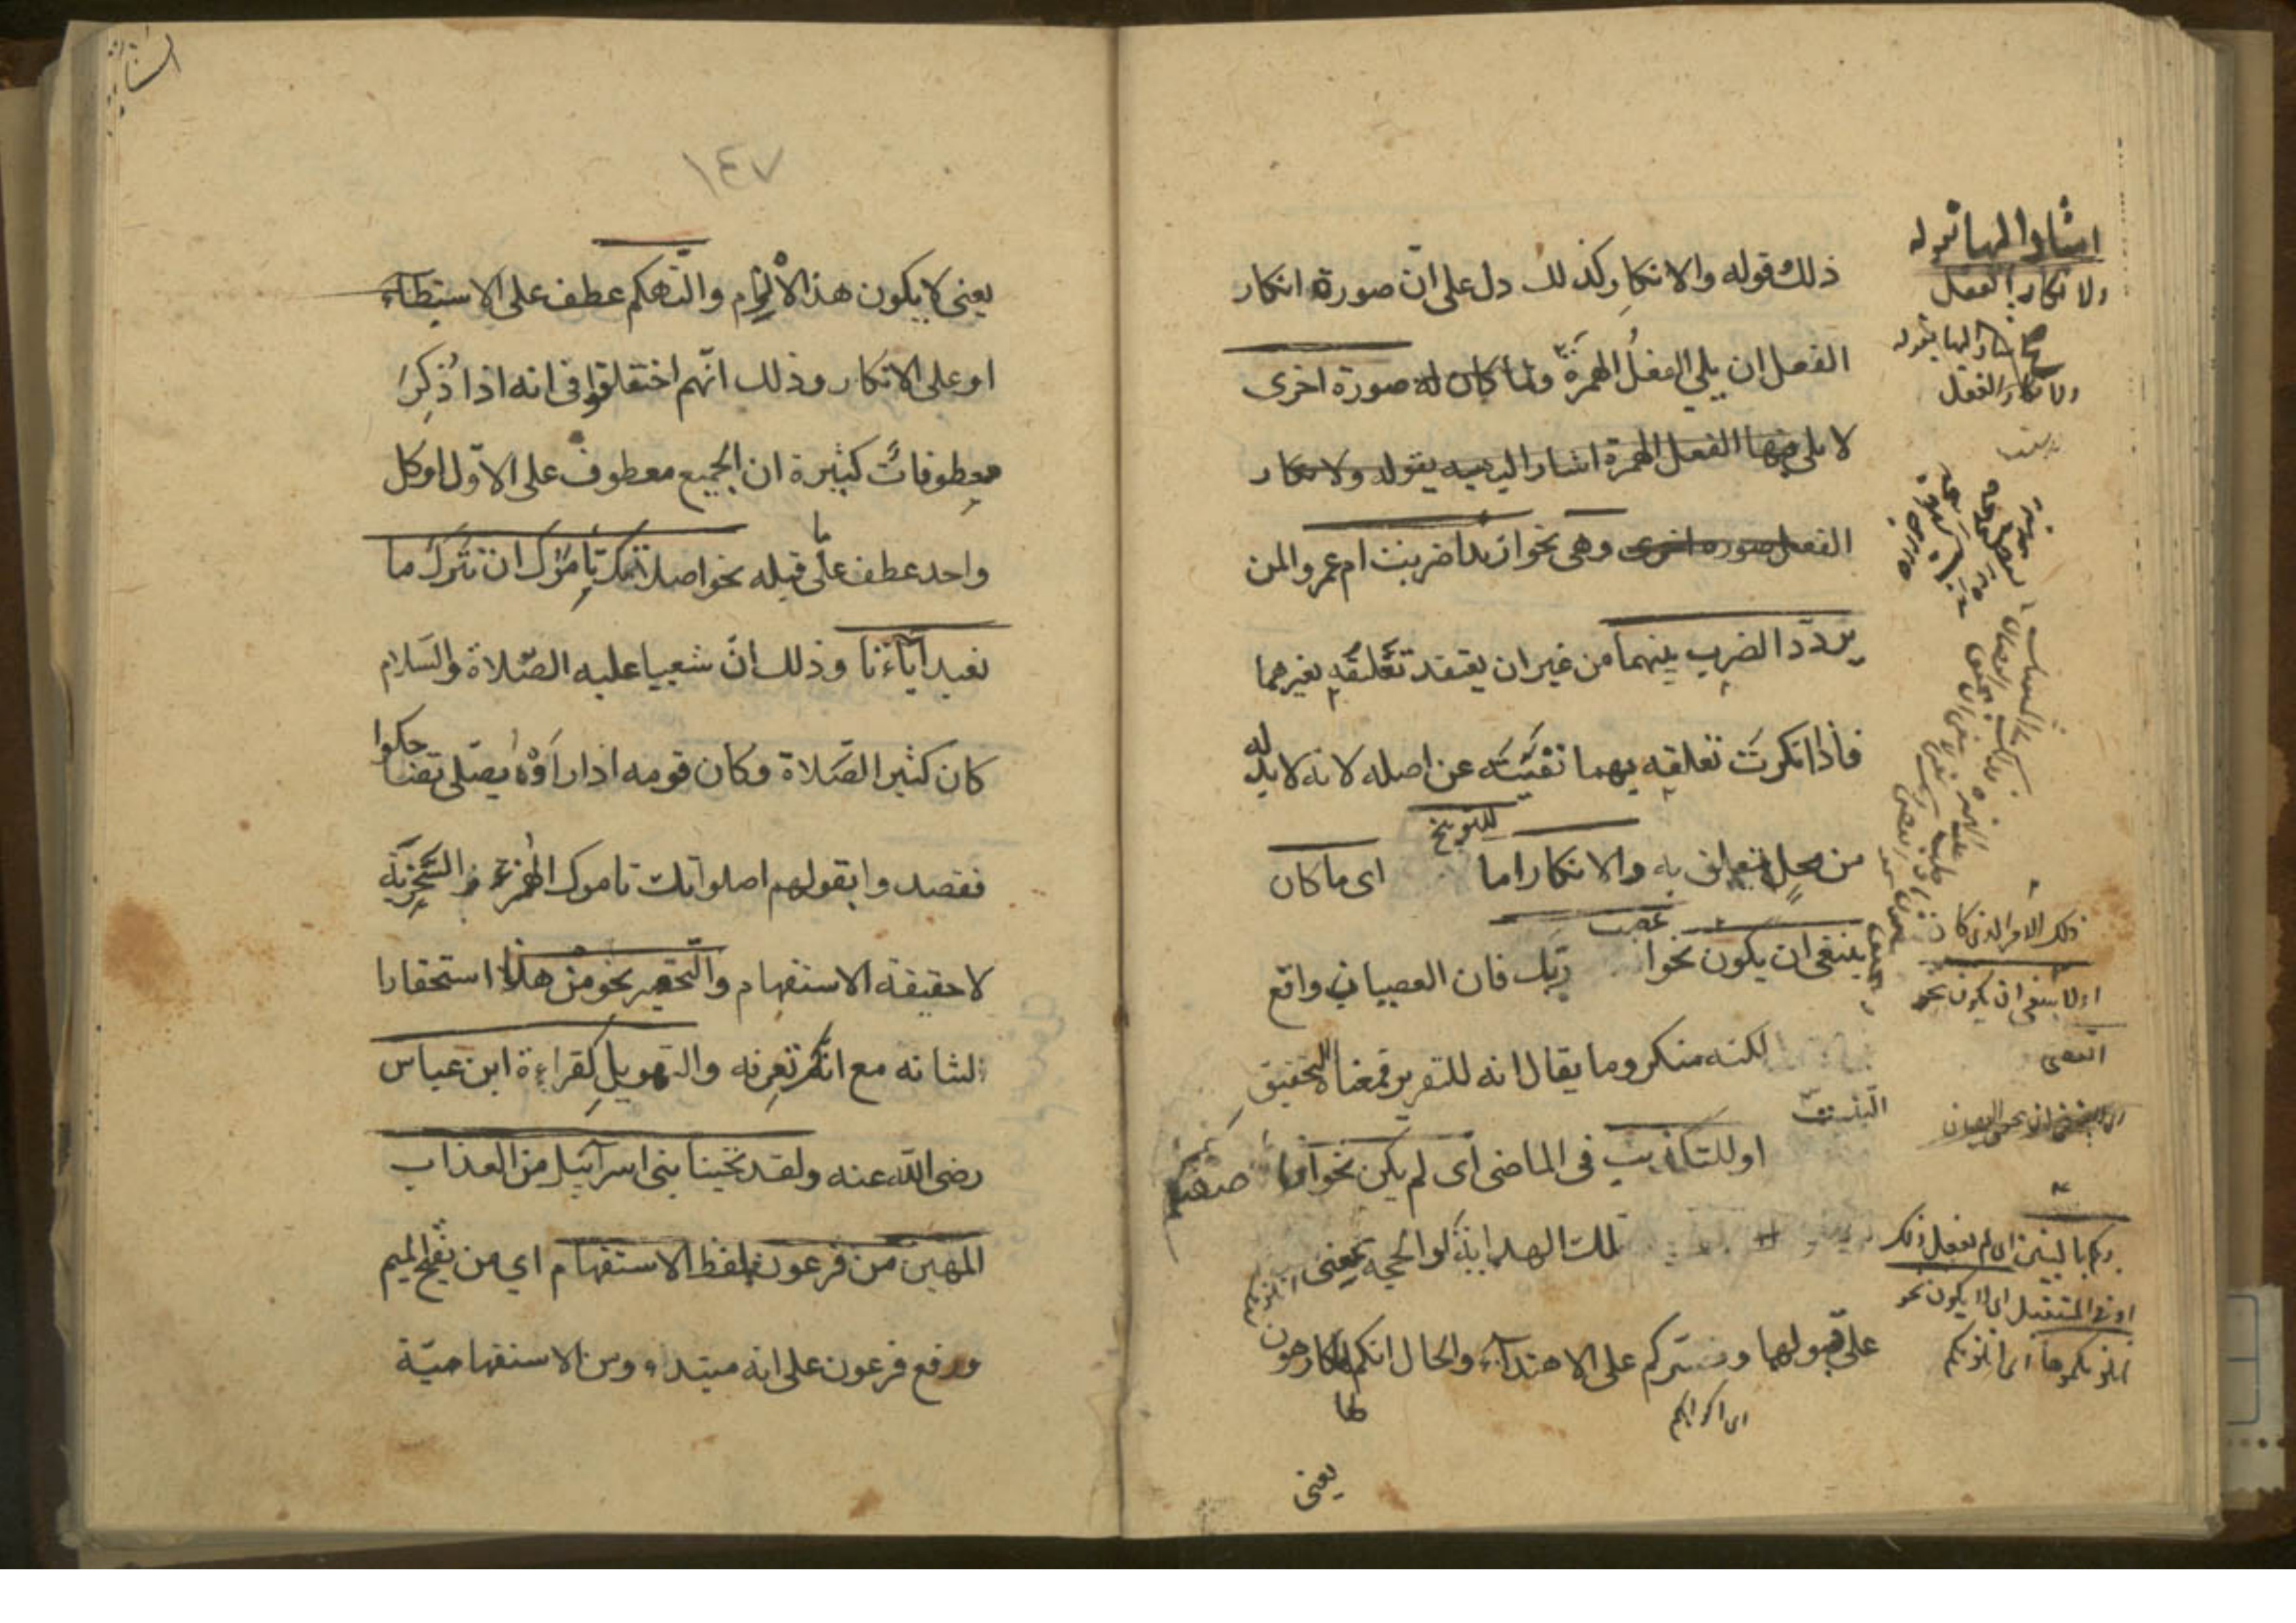 ذلك قوله والانكار كذلك دل على ان صورة انكار
الفعل ان يلي الفعل الهمزة ولما كان له صورة اخرى
لا يلي فيها الفعل الهمزة اشار اليه بقوله ولانكار
الفعل صورة اخرى وهى نحو ازيدا ضربت ام عمروا لمن
يردد الضرب بينهما من غير ان يعتقد تعلقه بغيرهما
فاذا انكرت تعلقه بهما نفيته عن اصله لانه لا بد له
من محل يتعلق به والانكار اما للتوبيخ اى ما كان
ينبغى ان يكون نحو اعصيت ربك فان العصيان واقع
لكنه منكر وما يقال انه للتقرير فمعناه التحقيق
التثبيت
او للتكذيب فى الماضى اى لم يكن نحو افاصفيكم
تلك الهداية او الحجة بمعنى انلزمكم
على قبولها ونقسركم على الاهتداء والحال انكم لها كارهون
اى اكراهكم
يعنى
اشار اليها بقوله
ولانكار الفعل
اشار اليها بقوله
ولانكار الفعل
ذلك الامر الذى كان
او لا ينبغى ان يكون نحو
اتعصى
ربكم بالبنين اى لم يفعل ذلك
او فى المستقبل اى لا يكون نحو
انلزمكموها اى انلزمكم
١٤٧
يعنى لا يكون هذا الالزام والتهكم عطف على الاستبطاء
او على الانكار وذلك انهم اختلفوا فى انه اذا ذكر
معطوفات كثيرة ان الجميع معطوف على الاول او كل
واحد عطف على ما قبله نحو اصلاتك تأمرك ان نترك ما
يعبد آباءنا وذلك ان شعيبا عليه الصلاة والسلام
كان كثير الصلاة وكان قومه اذا رأوه يصلى تضاحكوا
فقصدوا بقولهم اصلواتك تامرك الهزء والسخرية
لا حقيقة الاستفهام والتحقير نحو من هذا استحقارا
لشانه مع انك تعرفه والتهويل كقراءة ابن عباس
رضى الله عنه ولقد نجينا بنى اسرآئيل من العذاب
المهين من فرعون بلفظ الاستفهام اي من بفتح الميم
ورفع فرعون على انه مبتداء ومن الاستفهامية